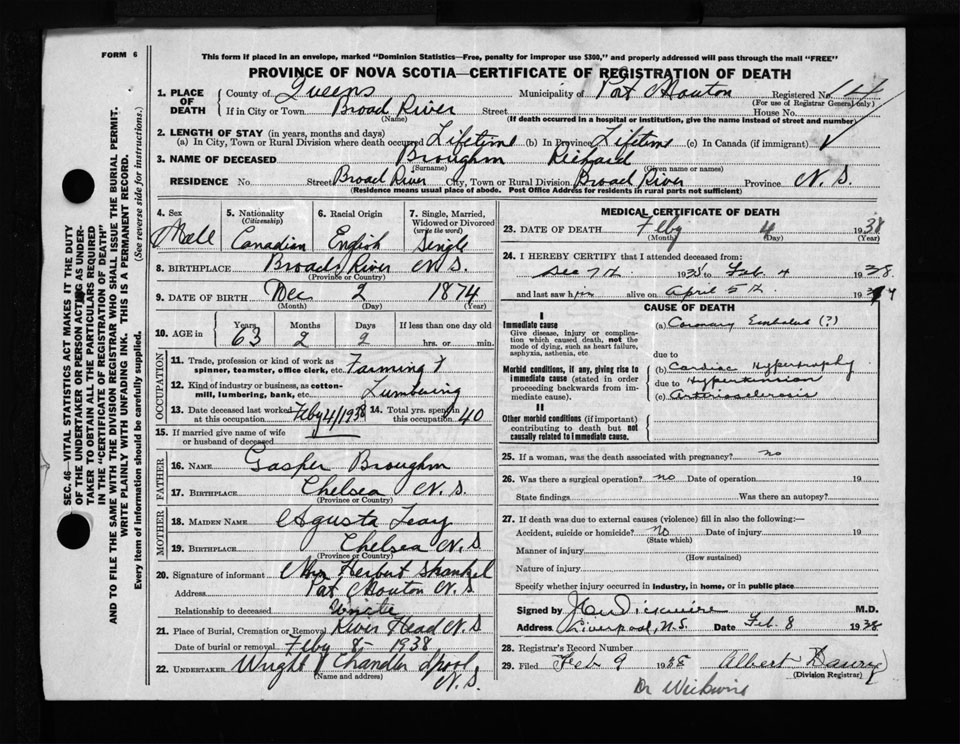 FORM 6
This form if placed in an envelope, marked "Dominion Statistics—Free, penalty for improper use $300," and properly addressed will pass through the mail "FREE"
PROVINCE OF NOVA SCOTIA—CERTIFICATE OF REGISTRATION OF DEATH
SEC. 46—VITAL STATISTICS ACT MAKES IT THE DUTY
OF THE UNDERTAKER OR PERSON ACTING AS UNDER-
TAKER TO OBTAIN ALL THE PARTICULARS REQUIRED
IN THE "CERTIFICATE OF REGISTRATION OF DEATH"
AND TO FILE THE SAME WITH THE DIVISION REGISTRAR WHO SHALL ISSUE THE BURIAL PERMIT.
WRITE PLAINLY WITH UNFADING INK. THIS IS A PERMANENT RECORD.
Every item of information should be carefully supplied. (See reverse side for instructions.)
1. PLACE OF DEATH County of Queens Municipality of Port Mouton Registered No.
(For use of Registrar General only)
If in City or Town Broad River Street House No.
(Name) (If death occurred in a hospital or institution, give the name instead of street and number)
2. LENGTH OF STAY (in years, months and days)
(a) In City, Town or Rural Division where death occurred Lifetime (b) In Province Lifetime (c) In Canada (if immigrant)
3. NAME OF DECEASED Broughm Richard
(Surname) (Given name or names)
RESIDENCE No. Street Broad River City, Town or Rural Division Broad River Province N.S.
(Residence means usual place of abode. Post Office Address for residents in rural parts not sufficient)
4. Sex Male
5. Nationality (Citizenship) Canadian
6. Racial Origin English
7. Single, Married, Widowed or Divorced (write the word) Single
8. BIRTHPLACE Broad River N.S.
(Province or Country)
9. DATE OF BIRTH Dec 2 1874
(Month) (Day) (Year)
10. AGE in Years 63 Months 2 Days 2 If less than one day old hrs. or min.
OCCUPATION
11. Trade, profession or kind of work as spinner, teamster, office clerk, etc. Farming &
12. Kind of industry or business, as cotton-mill, lumbering, bank, etc. Lumbering
13. Date deceased last worked at this occupation Feby 4/1938 14. Total yrs. spent in this occupation 40
15. If married give name of wife or husband of deceased
FATHER
16. NAME Gasper Broughm
17. BIRTHPLACE Chelsea N.S.
(Province or Country)
MOTHER
18. MAIDEN NAME Agusta
19. BIRTHPLACE Chelsea N.S
(Province or Country)
20. Signature of informant Mrs Herbert Shankel
Address Port Mouton N.S
Relationship to deceased Uncle
21. Place of Burial, Cremation or Removal River Head N.S
Date of burial or removal Feby 8 - 1938
22. UNDERTAKER Wright & Chandler Lpool, N.S.
(Name and address)
MEDICAL CERTIFICATE OF DEATH
23. DATE OF DEATH Feby 4 1938
(Month) (Day) (Year)
24. I HEREBY CERTIFY that I attended deceased from:
Dec 7th to Feb. 4 1938.
and last saw him alive on April 5th 19
CAUSE OF DEATH
I
Immediate cause
Give disease, injury or complication which caused death, not the mode of dying, such as heart failure, asphyxia, asthenia, etc
(a) Coronary Embolus (?)
due to
Morbid conditions, if any, giving rise to immediate cause (stated in order proceeding backwards from immediate cause).
(b) Cardiac Hypertrophy
due to Hypertension
(c) Arteriosclerosis
II
Other morbid conditions (if important) contributing to death but not causally related to immediate cause.
25. If a woman, was the death associated with pregnancy? no
26. Was there a surgical operation? no Date of operation 19
State findings Was there an autopsy?
27. If death was due to external causes (violence) fill in also the following:—
Accident, suicide or homicide? No Date of injury 19
(State which)
Manner of injury
(How sustained)
Nature of injury
Specify whether injury occurred in industry, in home, or in public place
Signed by J C Wickwire M.D.
Address Liverpool, N.S. Date Feb. 8 1938
28. Registrar's Record Number
29. Filed Feb 9 1938 Albert
(Division Registrar)
Dr Wickwire